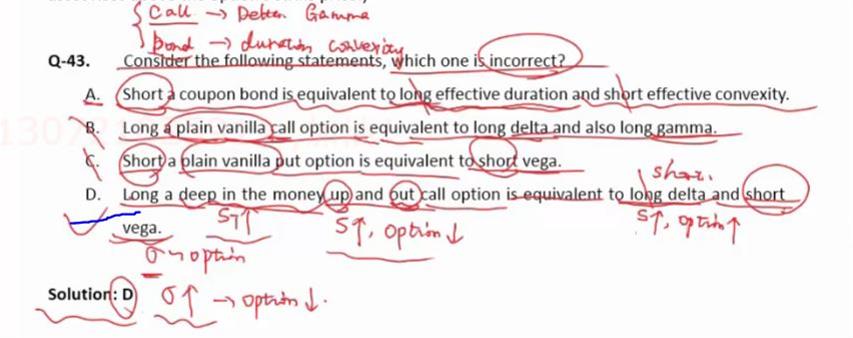 call → Delta Gamma
bond → duration convexity
Q-43. Consider the following statements, which one is incorrect?
A. Short a coupon bond is equivalent to long effective duration and short effective convexity.
B. Long a plain vanilla call option is equivalent to long delta and also long gamma.
C. Short a plain vanilla put option is equivalent to short vega.
short.
D. Long a deep in the money up and out call option is equivalent to long delta and short
vega. S↑ S↑, option↓ S↑, option↑
σ option
Solution: D σ↑ → option↓.